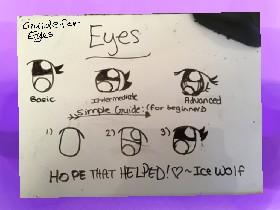 Guide for
Eyes
Eyes
Basic Intermediate Advanced
Simple Guide: (for beginners)
1) 2) 3)
HOPE THAT HELPED! ♡~ Ice Wolf